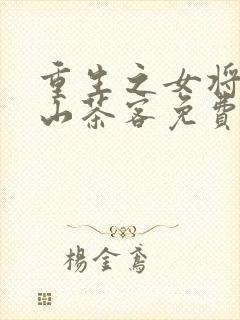 重生之女将
山茶客免费
楊金鳶